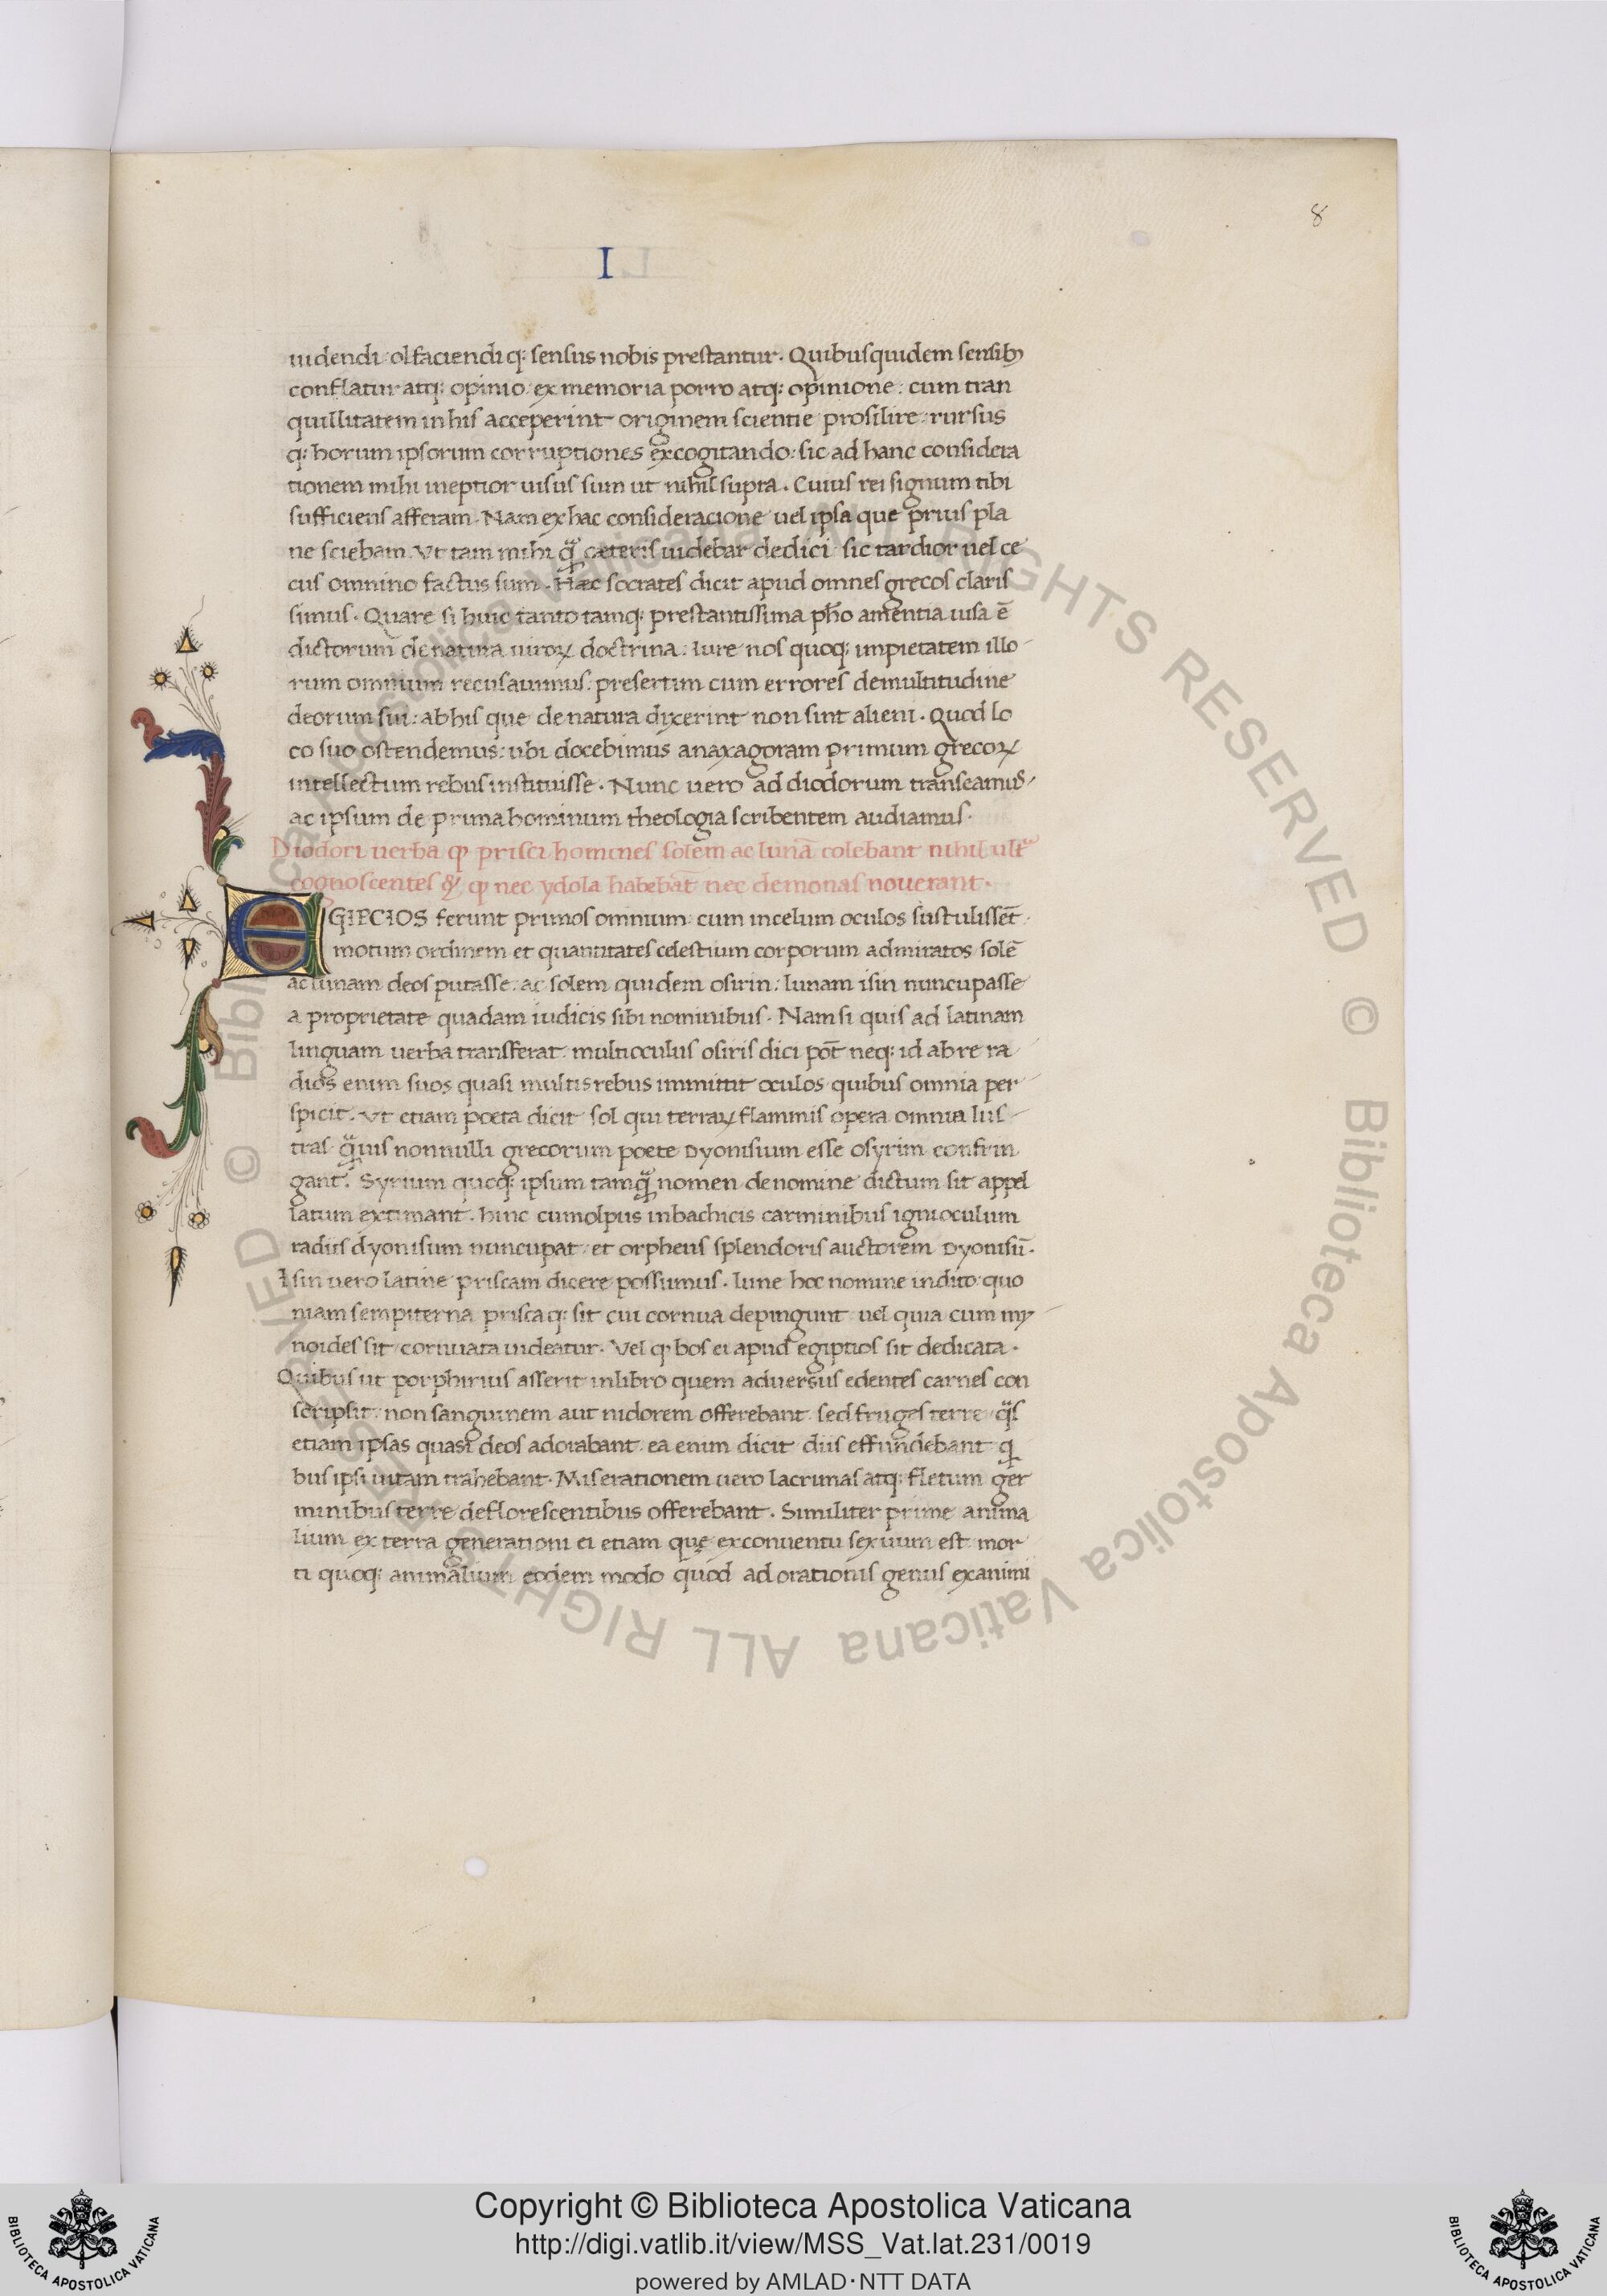 8
I
uidendi olfaciendi q: sensus nobis prestantur. Quibusquidem sensibꝫ
conflatur atq: opinio: ex memoria porro atq: opinione: cum tran
quillitatem in his acceperint originem scientie prosilire: rursus
q: horum ipsorum corruptiones excogitando: sic ad hanc considera
tionem mihi ineptior uisus sum ut nihil supra. Cuius rei signum tibi
sufficiens afferam. Nam ex hac consideracione uel ipsa que prius pla
ne sciebam. Ut tam mihi qͣꝫ cæteris uidebar dedici sic tardior uel ce
cus omnino factus sum. Hæc socrates dicit apud omnes grecos claris
simus. Quare si huic tanto tamq: prestantissima pho amentia uisa ē
dictorum de natura uiroꝝ doctrina: Iure nos quoq: impietatem illo
rum omnium recusauimus: presertim cum errores demultitudine
deorum sui: abhis que de natura dixerint non sint alieni. Quod lo
co suo ostendemus: ubi docebimus anaxagoram primum grecoꝝ
intellectum rebus instituisse. Nunc uero ad diodorum transeamus
ac ipsum de prima hominum theologia scribentem audiamus.
Diodori uerba ꝙ prisci homines solem ac lunā colebant nihil ultᵃ
cognoscentes & ꝙ nec ydola habebāt nec demonas nouerant.
EGIPCIOS ferunt primos omnium: cum incelum oculos sustulissēt
motum ordinem et quantitates celestium corporum admiratos solē
ac lunam deos putasse: ac solem quidem osirin: lunam isin nuncupasse
a proprietate quadam iudicis sibi nominibus. Nam si quis ad latinam
linguam uerba transferat: multioculus osiris dici pot̄ neq: id abre ra
dios enim suos quasi multis rebus immittit oculos quibus omnia per
spicit. Ut etiam poeta dicit sol qui terraꝝ flammis opera omnia lus
tras. qͣuis nonnulli grecorum poete Dyonisium esse osyrim confrin
gant. Syrium quoq: ipsum tamqͣꝫ nomen denomine dictum sit appel
latum extimant. hinc eumolpus inbachicis carminibus ignioculum
radiis dyonisum nuncupat: et orpheus splendoris auctorem Dyonisū.
Isin uero latine priscam dicere possumus. lune hoc nomine indito: quo
niam sempiterna priscaq: sit cui cornua depingunt uel quia cum my
noides sit cornuata uideatur. Vel ꝙ bos ei apud egiptios sit dedicata.
Quibus ut porphirius asserit inlibro quem aduersus edentes carnes con
scripsit: non sanguinem aut nidorem offerebant sed fruges terre qͣs
etiam ipsas quasi deos adorabant ea enim dicit diis effundebant q
bus ipsi uitam trahebant. Miserationem uero lacrimas atq: fletum ger
minibus terre deflorescentibus offerebant. Similiter prime anima
lium ex terra generationi ei etiam que exconuentu sexuum est mor
ti quoq: animalium eodem modo quod ad orationis genus exanimi
Copyright © Biblioteca Apostolica Vaticana
http://digi.vatlib.it/view/MSS_Vat.lat.231/0019
powered by AMLAD·NTT DATA
BIBLIOTECA APOSTOLICA VATICANA
BIBLIOTECA APOSTOLICA VATICANA
© Biblioteca Apostolica Vaticana ALL RIGHTS RESERVED © Biblioteca Apostolica Vaticana ALL RIGHTS RESERVED